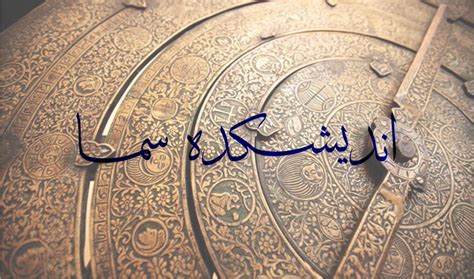 اندیشکده سما